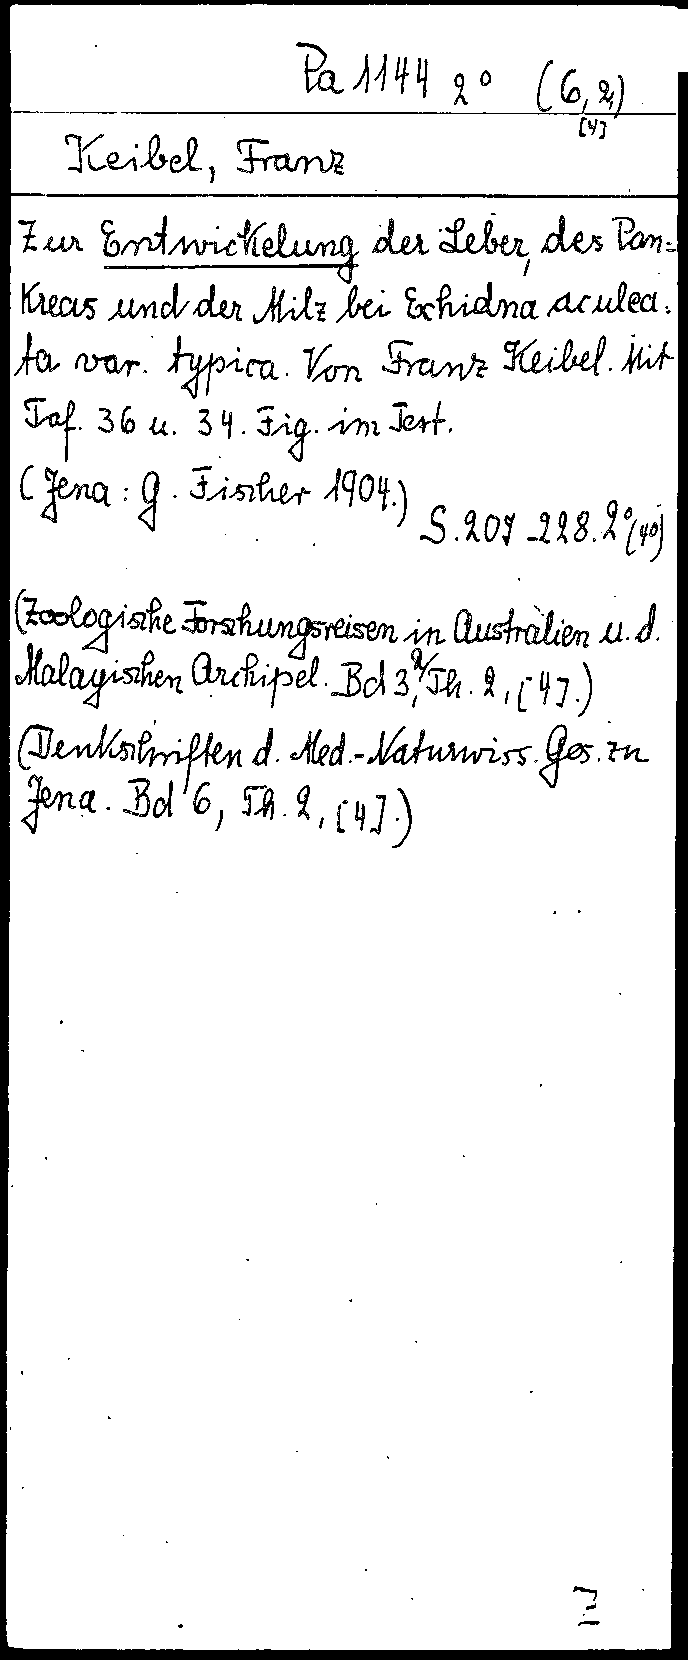 Pa 1144 2° (6,2,)
[4]
Keibel, Franz
Zur Entwickelung der Leber, des Pan=
kreas und der Milz bei Echidna aculea=
ta var. typica. Von Franz Keibel. Mit
Taf. 36 u. 34. Fig. im Text.
(Jena: G. Fischer 1904.)
S. 207-228. 2° (4°)
(Zoologische Forschungsreisen in Australien u. d.
Malayischen Archipel. Bd 3, 2/Th. 2, [4].)
(Denkschriften d. Med.-Naturwiss. Ges. zu
Jena. Bd 6, Th. 2, [4].)
Z